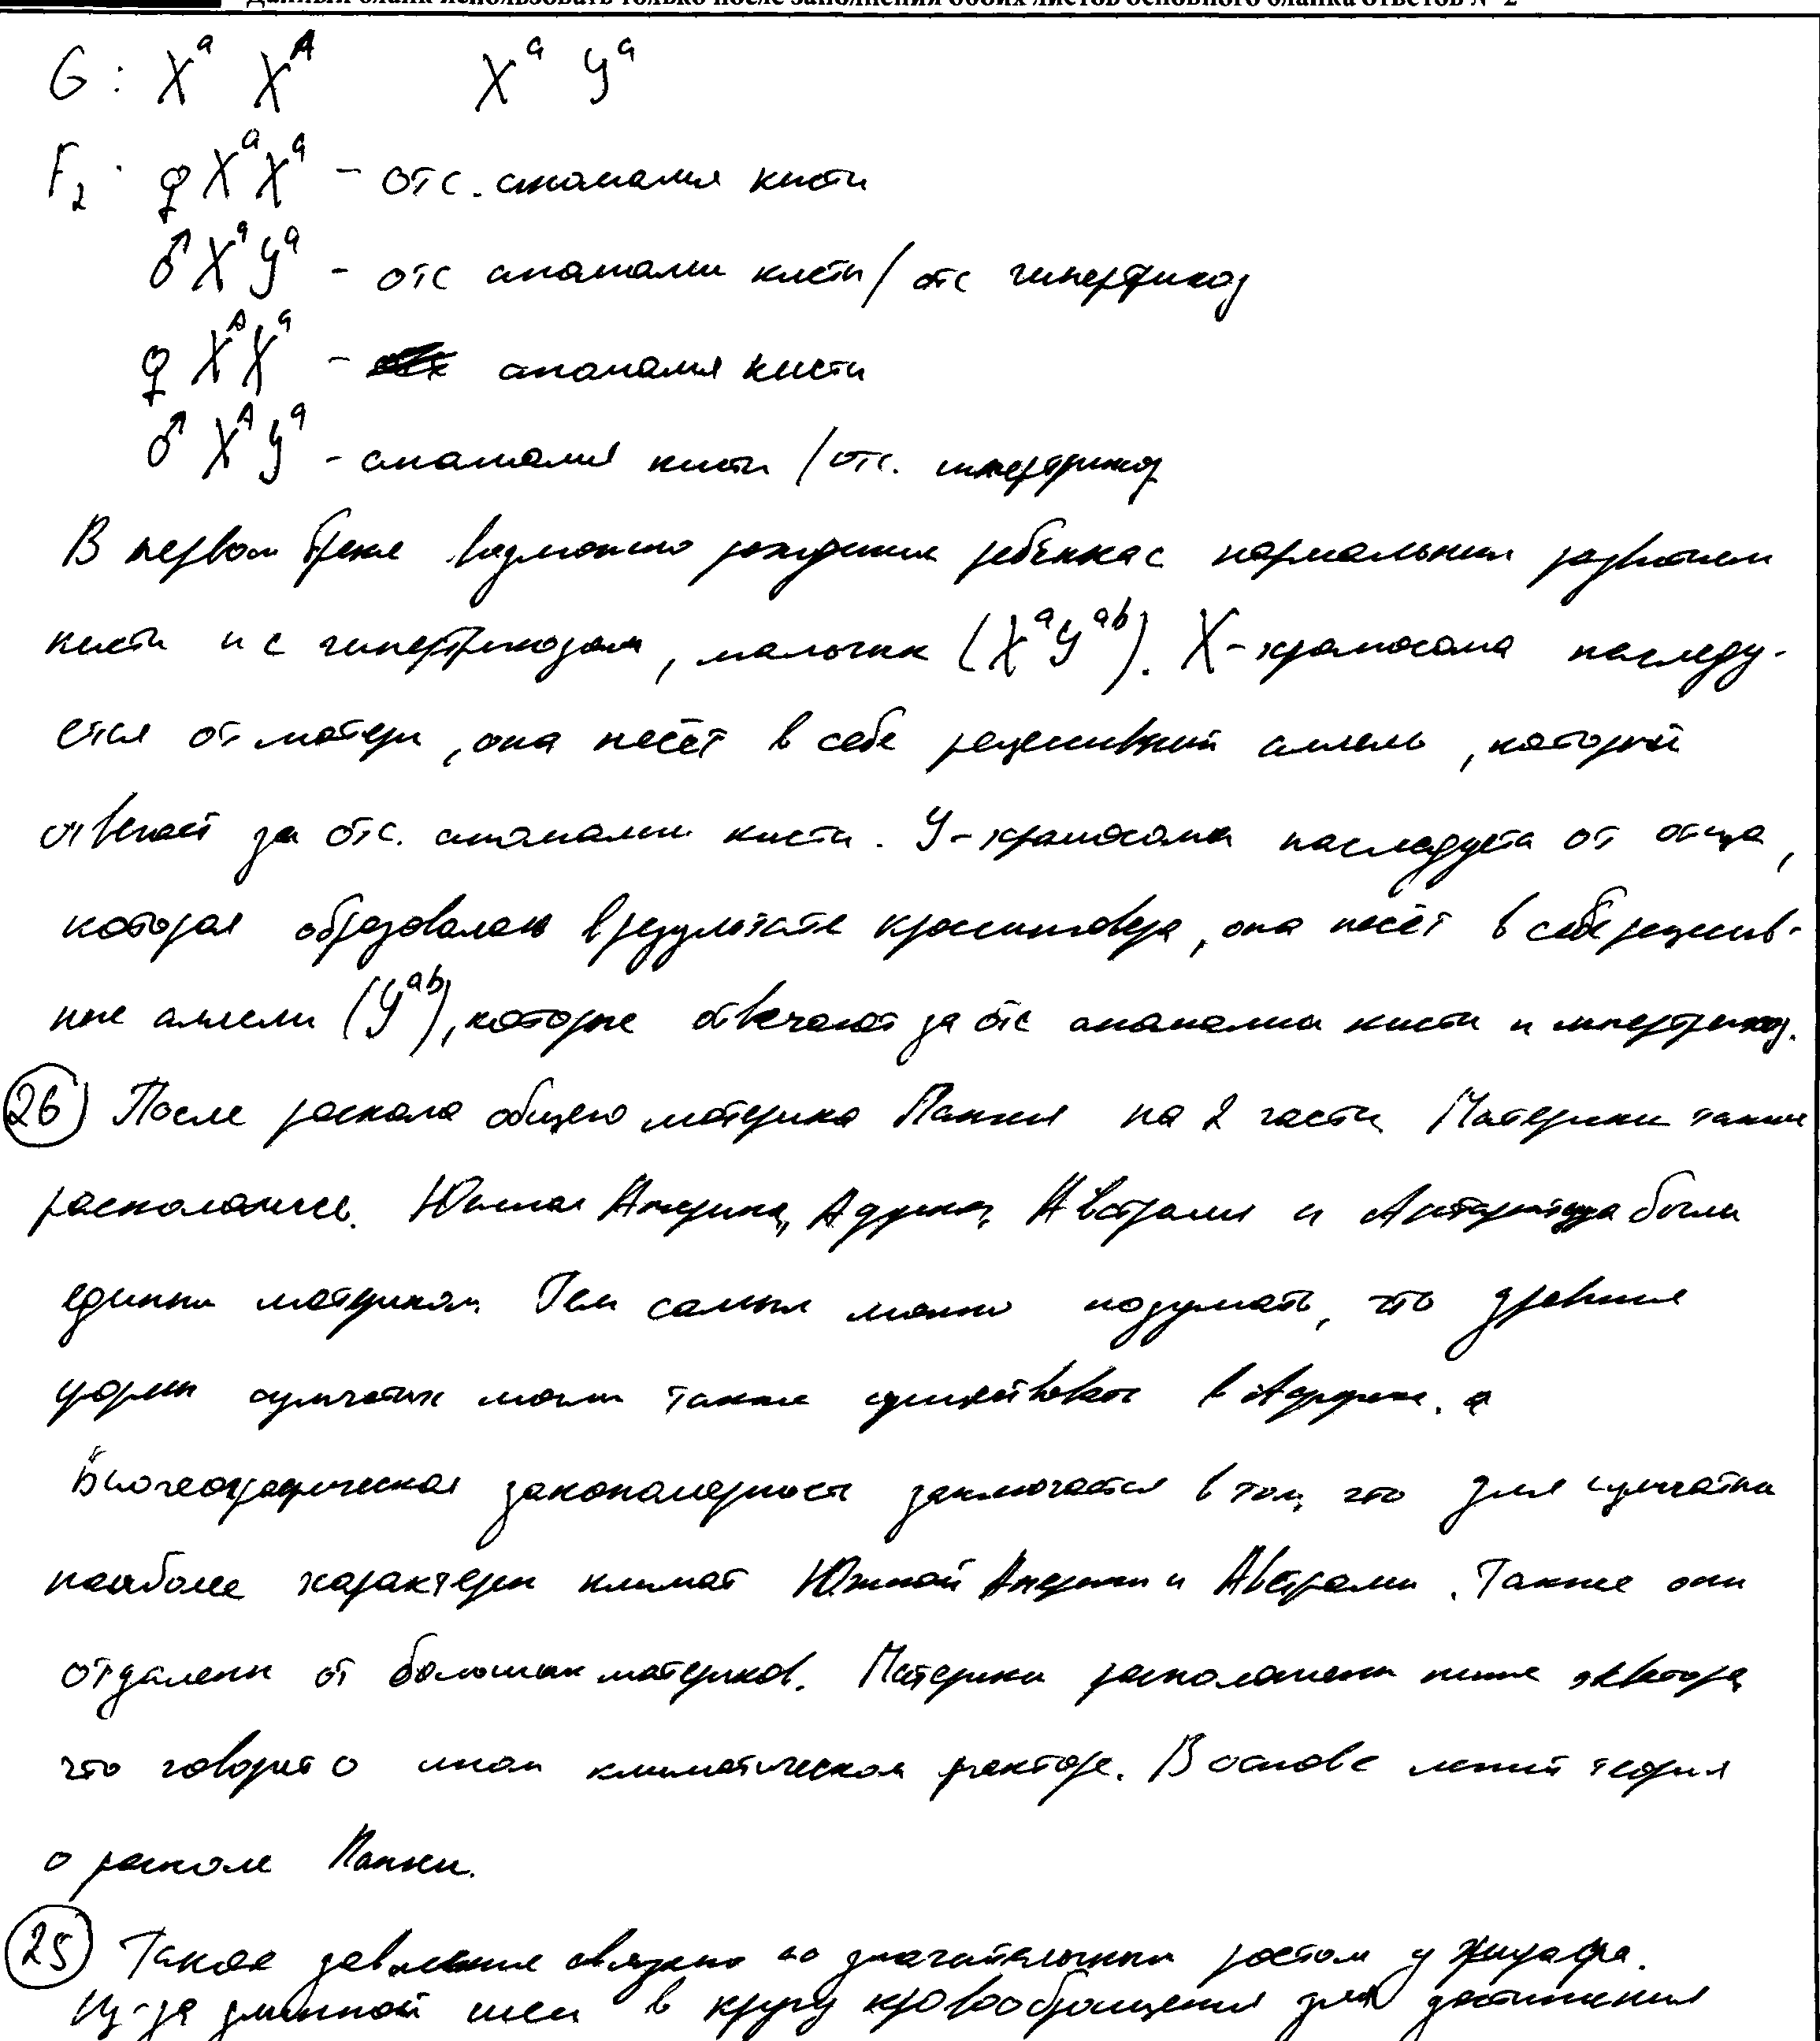 Данный бланк использовать только после заполнения обоих листов основного бланка ответов № 2
G: X^a X^A X^a У^a
F₂: ♀ X^a X^a - отс. аномалия кисти
♂ X^a У^a - отс аномалии кисти / отс гипертрихоз
♀ X^A X^a - аномалия кисти
♂ X^A У^a - аномалия кисти / отс. гипертрихоз
В первом браке возможно рождение ребёнка с нормальным развитием
кисти и с гипертрихозом, мальчик (X^a У^ab). X-хромосома наследу-
ется от матери, она несёт в себе рецессивный аллель, который
отвечает за отс. аномалии кисти. У-хромосома наследуется от отца,
которая образовалась в результате кроссинговера, она несёт в себе рецессив-
ные аллели (У^ab), которые отвечают за отс аномалии кисти и гипертрихоз.
26) После раскола общего материка Пангея на 2 части Материки также
раскололись. Южная Америка, Африка, Австралия и Антарктида были
единым материком Тем самым можно подумать, что древние
формы сумчатых могли также существовать в Африке.
Биогеографическая закономерность заключается в том, что для сумчатых
наиболее характерен климат Южной Америки и Австралии. Также они
отдалены от больших материков. Материки расположены ниже экватора,
что говорит о ином климатическом факторе. В основе лежит теория
о расколе Пангеи.
25) Такое давление связано со значительным ростом у жирафа.
Из-за длинной шеи в кругу кровообращения для достижения